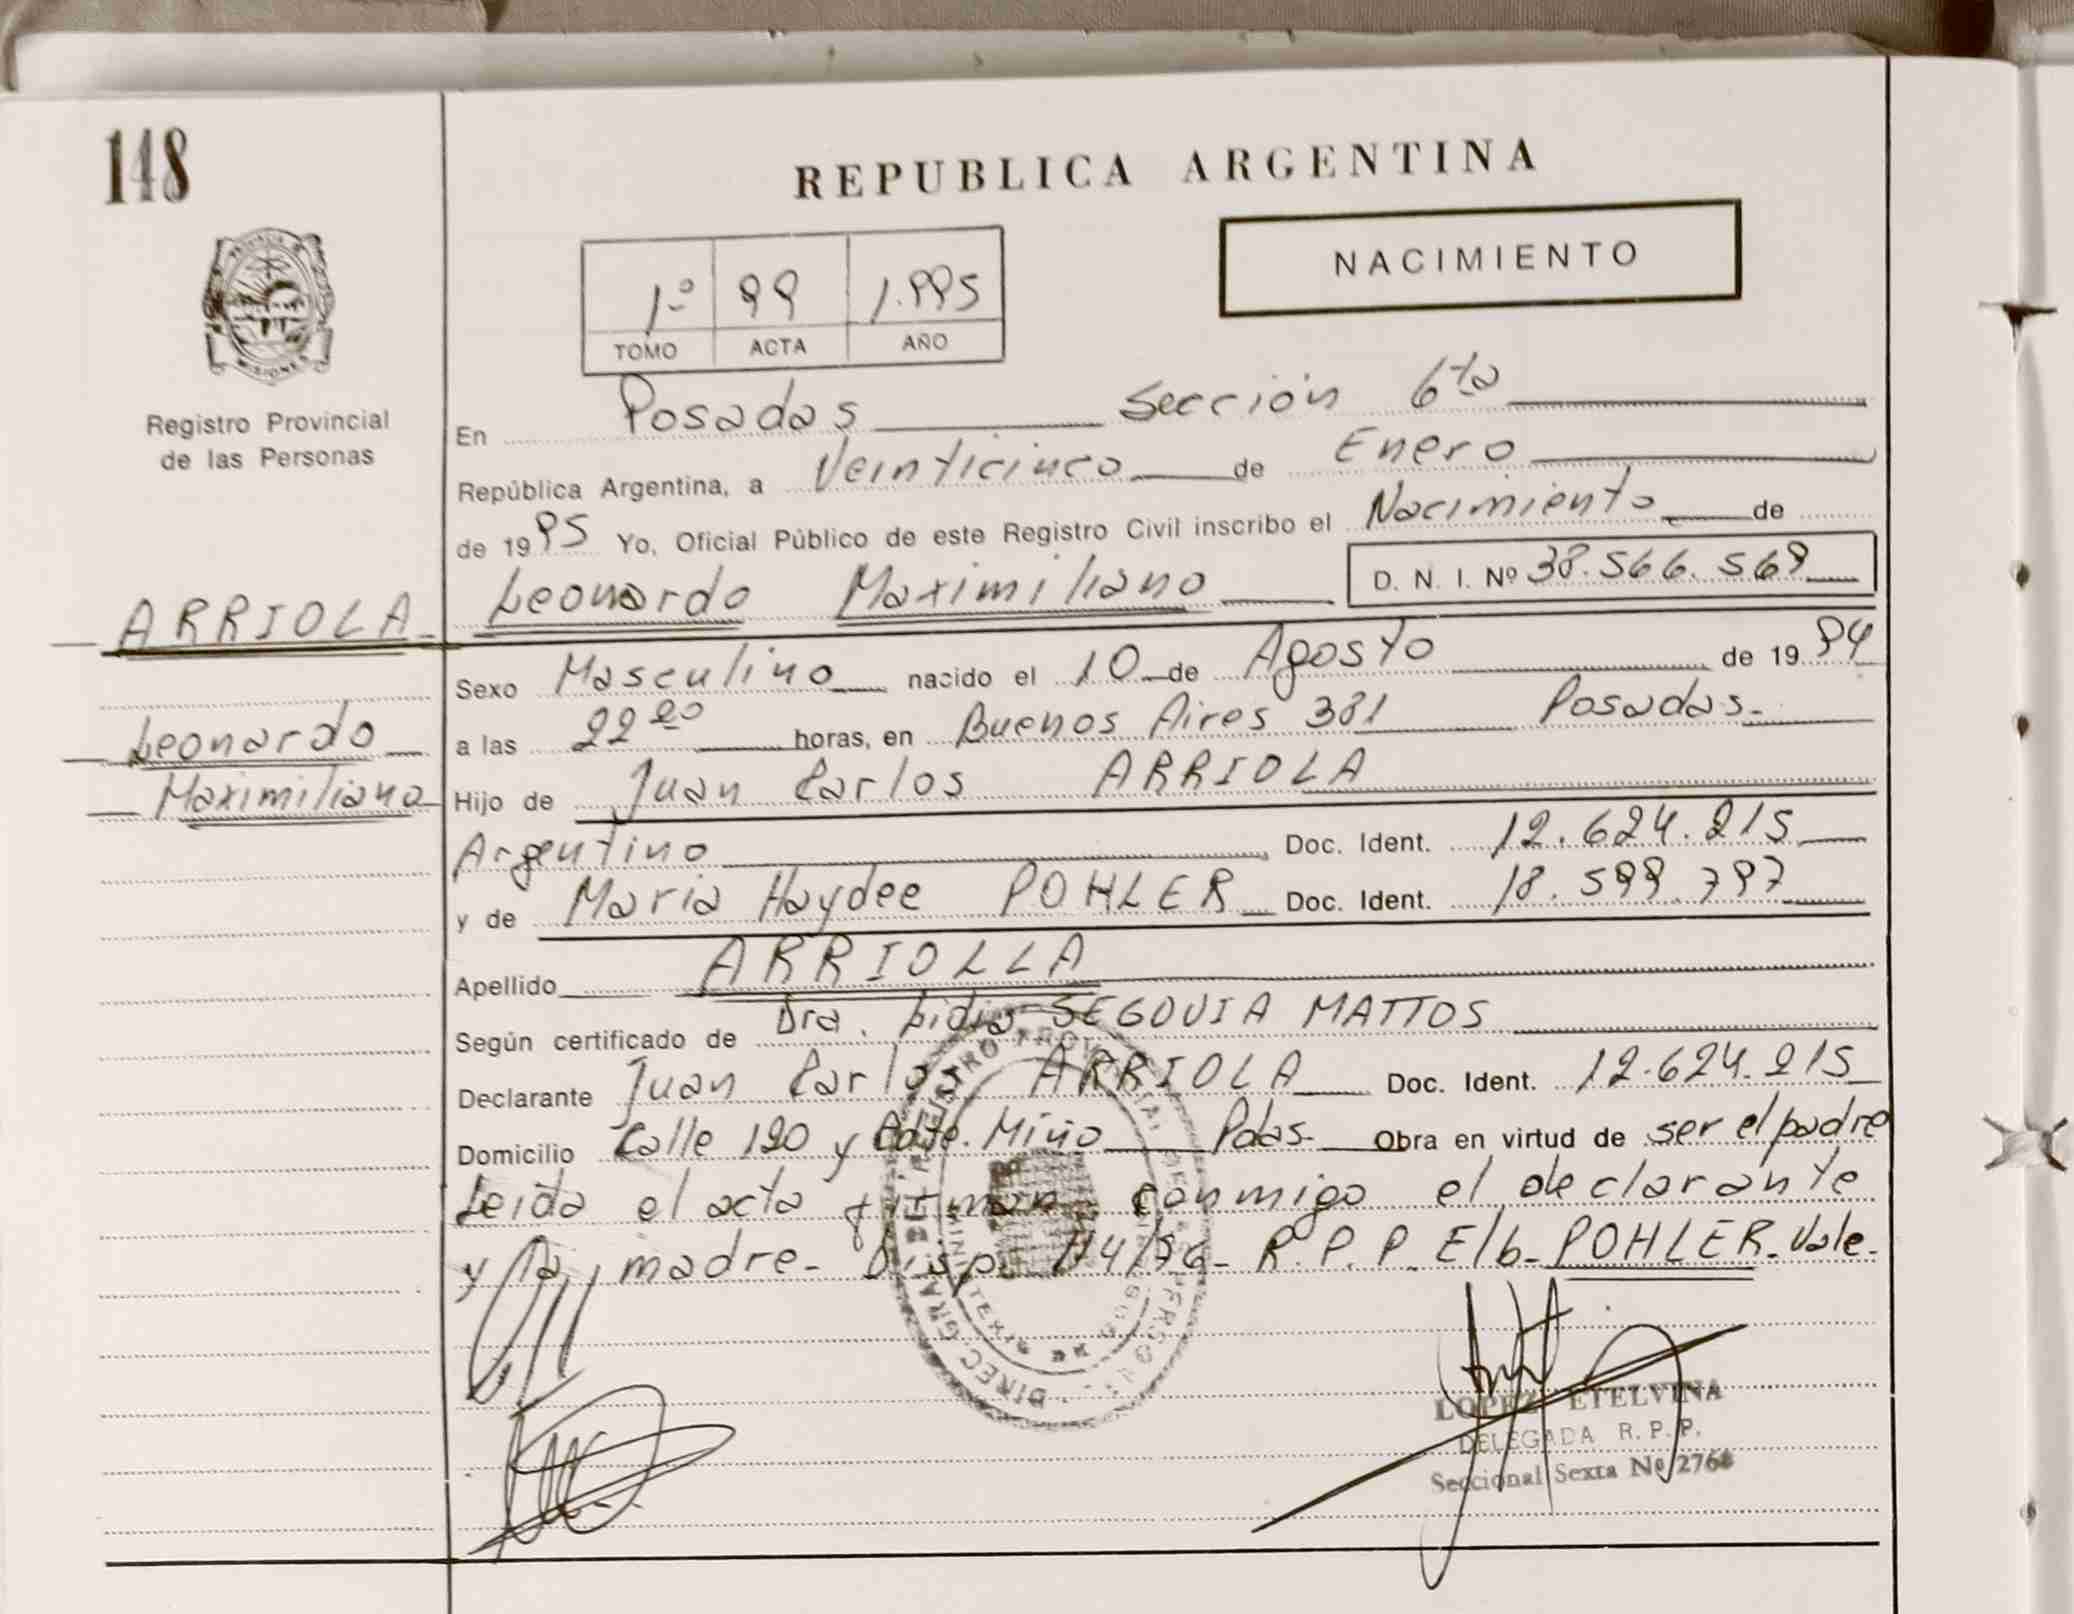 148
REPUBLICA ARGENTINA
NACIMIENTO
1º 99 1.995
TOMO ACTA AÑO
Registro Provincial
de las Personas
En Posadas Sección 6ta
República Argentina, a Veinticinco de Enero
de 1995 Yo, Oficial Público de este Registro Civil inscribo el Nacimiento de
ARRIOLA Leonardo Maximiliano D. N. I. Nº 38.566.569
Sexo Masculino nacido el 10 de Agosto de 1994
Leonardo
a las 22 20 horas, en Buenos Aires 381 Posadas.
Maximiliano
Hijo de Juan Carlos ARRIOLA
Argentino Doc. Ident. 12.624.215
y de Maria Haydee POHLER Doc. Ident. 18.599.797
Apellido ARRIOLLA
Según certificado de Dra. Lidia SEGOVIA MATTOS
Declarante Juan Carlos ARRIOLA Doc. Ident. 12.624.215
Domicilio Calle 120 y Miño Pdas. Obra en virtud de ser el padre
Leida el acta firman conmigo el declarante
y la madre- Disp. R.P.P. E/b- POHLER. Vale-
LOPEZ ETELVINA
DELEGADA R. P. P.
Seccional Sexta Nº 2768